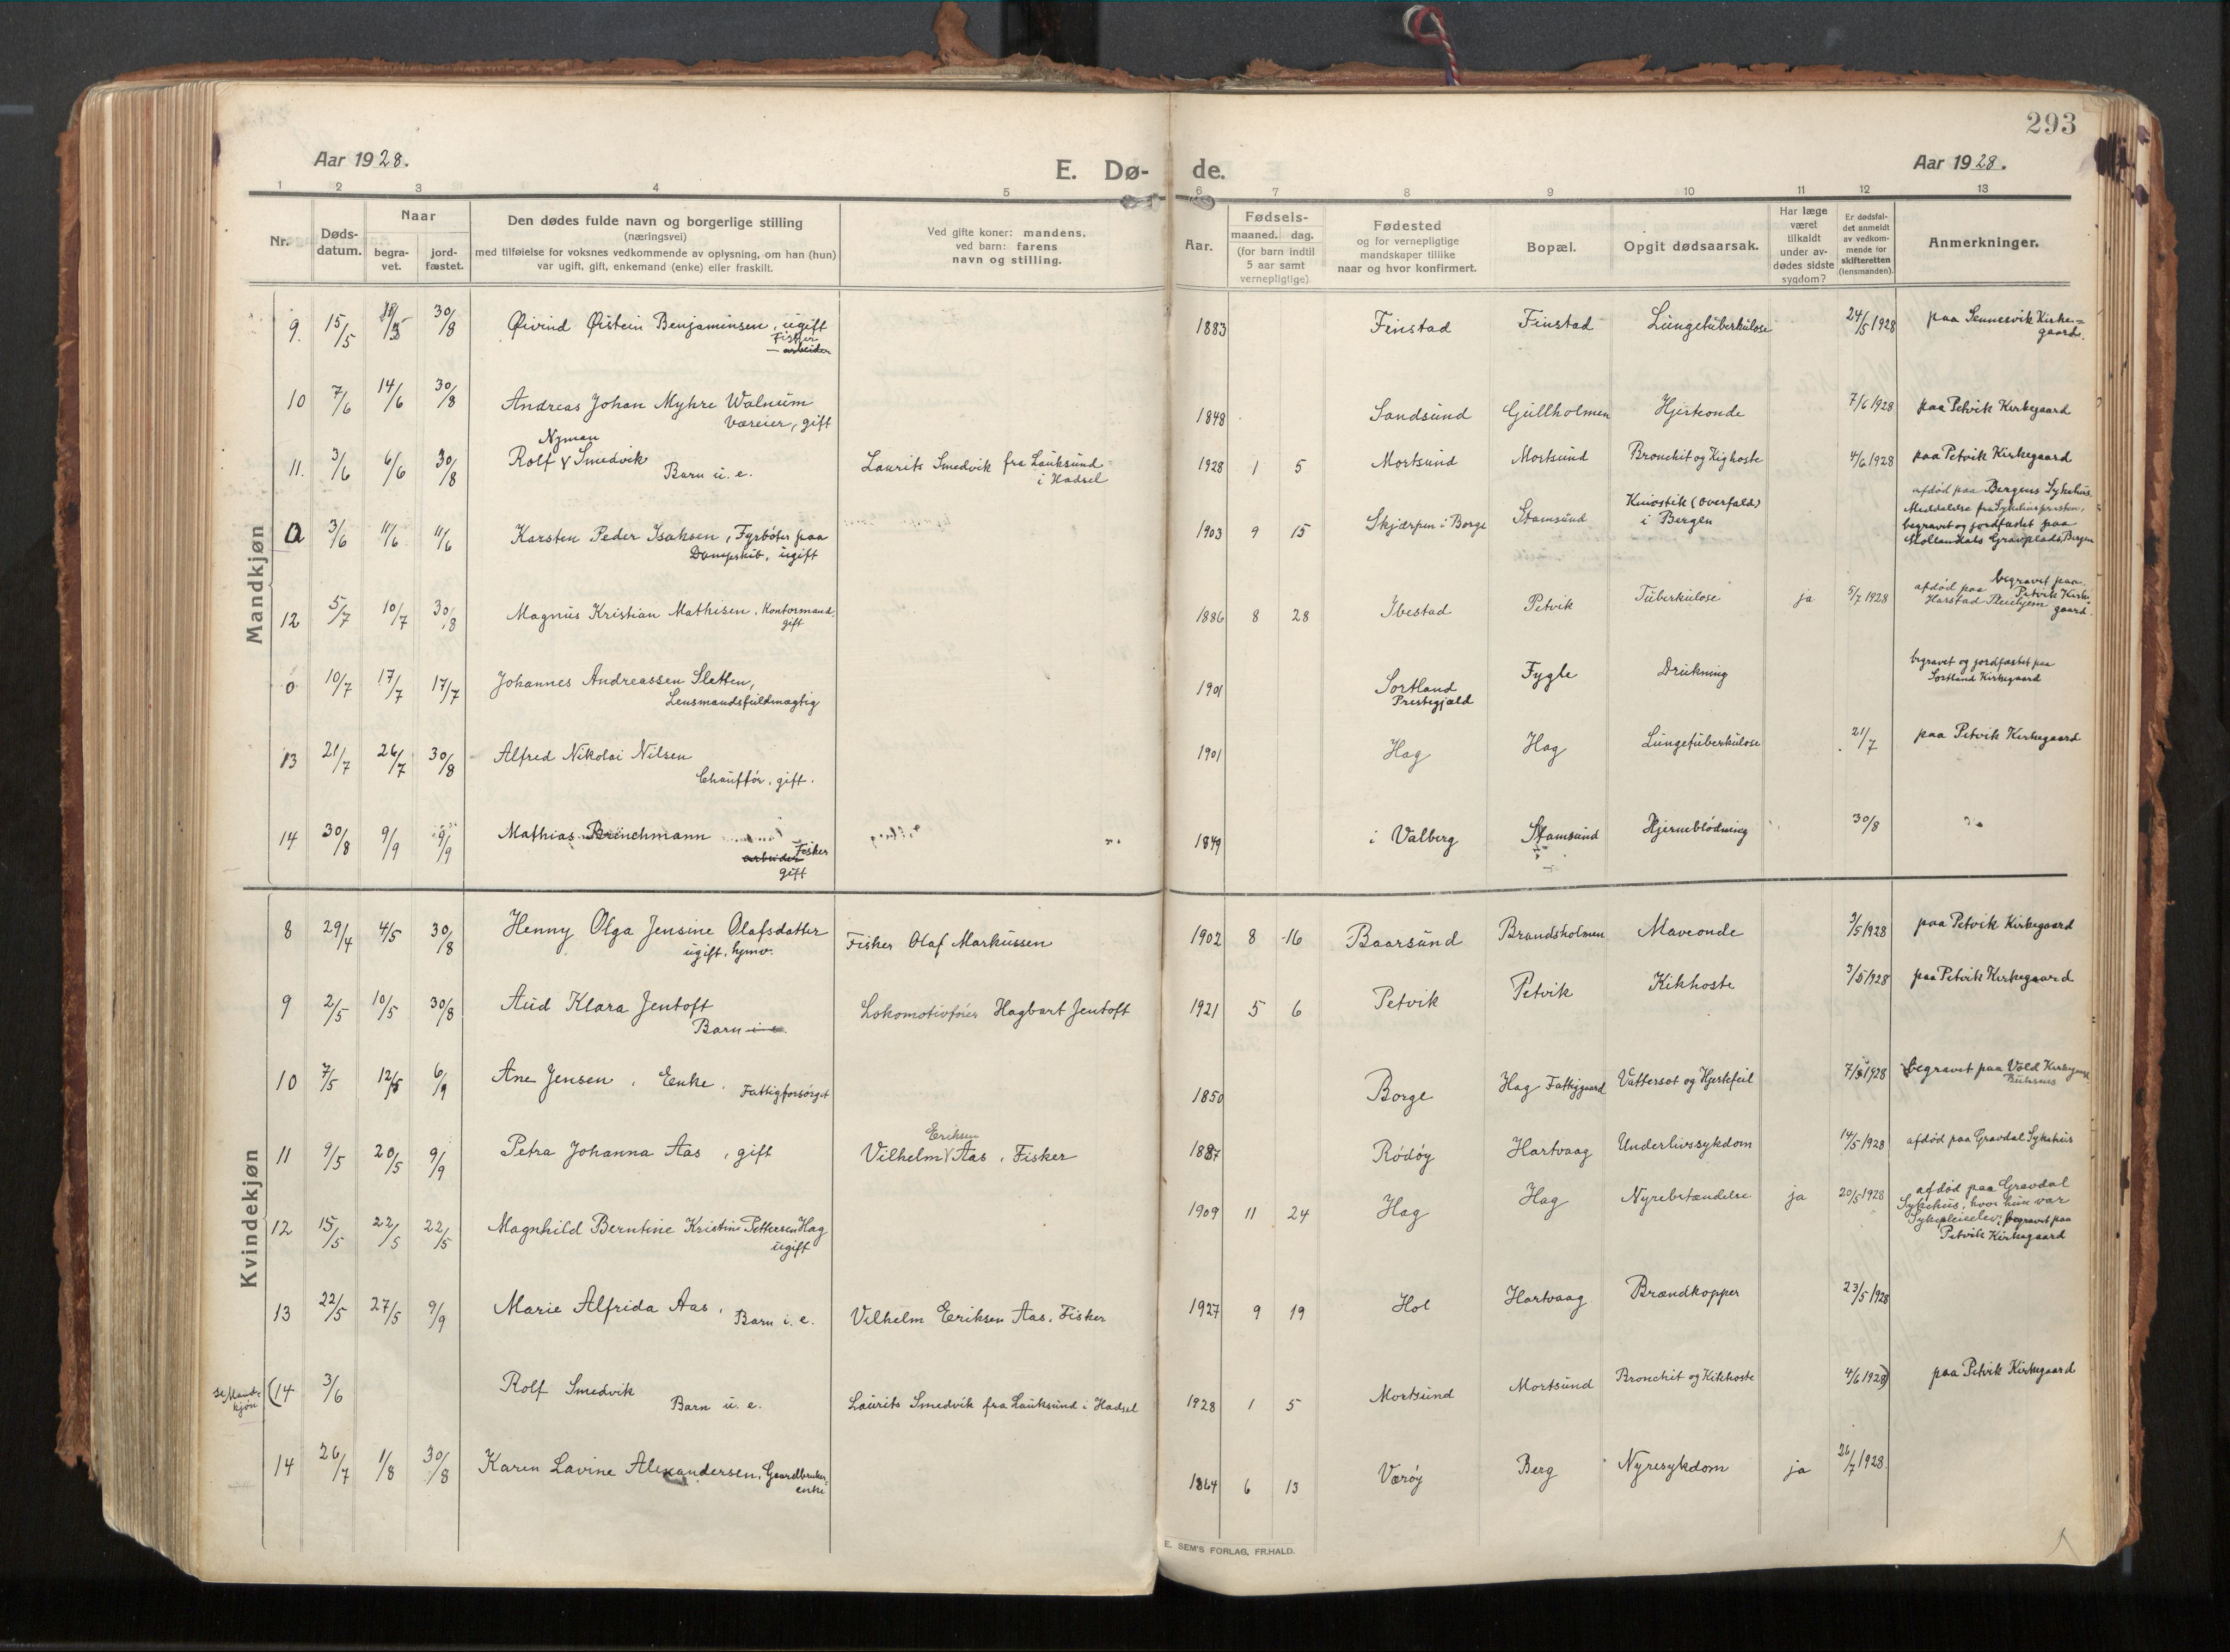 293
Aar 1928.
E. Dø- de.
Aar 1928.
1 2 3 4 5 6 7 8 9 10 11 12 13
Nr.
Døds-
datum.
Naar
begra-
vet.
jord-
fæstet.
Den dødes fulde navn og borgerlige stilling
(næringsvei)
med tilføielse for voksnes vedkommende av oplysning, om han (hun)
var ugift, gift, enkemand (enke) eller fraskilt.
Ved gifte koner: mandens,
ved barn: farens
navn og stilling.
Aar.
Fødsels-
maaned. dag.
(for barn indtil
5 aar samt
vernepligtige)
Fødested
og for vernepligtige
mandskaper tillike
naar og hvor konfirmert.
Bopæl.
Opgit dødsaarsak.
Har læge
været
tilkaldt
under av-
dødes sidste
sygdom?
Er dødsfal-
det anmeldt
av vedkom-
mende for
skifteretten
(lensmanden).
Anmerkninger.
Mandkjøn
9. 15/5 30/8 Øivind Øistein Benjaminsen, ugift 1883 Finstad Finstad Lungetuberkulose 24/5 1928 paa Sennesvik Kirke=
Fisker gaard.
— arbeider
10 7/6 14/6 30/8 Andreas Johan Myhre Walnum 1848 Sandsund Gullholmen Hjerteonde 7/6 1928 paa Petvik Kirkegaard
Væreier, gift
Nyman
11. 3/6 6/6 30/8 Rolf Smedvik Laurits Smedvik fra Lauksund 1928 1 5 Mortsund Mortsund Bronchit og Kighoste 4/6 1928 paa Petvik Kirkegaard
Barn u. e. i Hadsel
0 3/6 11/6 11/6 Karsten Peder Isaksen, Fyrbøter paa 1903 9 15 Skjærpen i Borge Stamsund Knivstik (Overfald) afdød paa Bergens Sykehus.
Dampskib, ugift i Bergen Meddelelse fra Sykehuspresten,
begravet og jordfæstet paa
Møllendals Gravplads, Bergen
12 5/7 10/7 30/8 Magnus Kristian Mathisen, Kontormand 1886 8 28 Ibestad Petvik Tuberkulose ja 5/7 1928 afdød paa begravet paa
gift Harstad Pleiehjem Petvik Kirke-
gaard.
0 10/7 17/7 17/7 Johannes Andreassen Sletten, 1901 Sortland Fygle Drukning begravet og jordfæstet paa
Lensmandsfuldmægtig Prestegjæld Sortland Kirkegaard
13 21/7 26/7 30/8 Alfred Nikolai Nilsen 1901 Hag Hag Lungetuberkulose 21/7 paa Petvik Kirkegaard
Chauffør, gift.
14 30/8 9/9 9/9 Mathias Brinchmann 1849 i Valberg Stamsund Hjerneblødning 30/8
arbeider Fisker
gift
Kvindekjøn
8 29/4 4/5 30/8 Henny Olga Jensine Olafsdatter Fisker Olaf Markussen 1902 8 16 Baarsund Brandsholmen Maveonde 3/5 1928 paa Petvik Kirkegaard
ugift, hjmv.
9 2/5 10/5 30/8 Aud Klara Jentoft Lokomotivfører Hagbart Jentoft 1921 5 6 Petvik Petvik Kikhoste 3/5 1928 paa Petvik Kirkegaard
Barn i e.
10 7/5 12/5 6/9 Ane Jensen, Enke. 1850 Borge Hag Fattiggaard Vattersot og Hjertefeil 7/5 1928 begravet paa Vold Kirkegaard
Fattigforsørget Buksnes
11 9/5 20/5 9/9 Petra Johanna Aas, gift Vilhelm Eriksen Aas, Fisker 1887 Rødøy Hartvaag Underlivssykdom 14/5 1928 afdød paa Gravdal Sykehus
12 15/5 22/5 22/5 Magnhild Berntine Kristine Pettersen Hag 1909 11 24 Hag Hag Nyrebetændelse ja 20/5 1928 afdød paa Gravdal
ugift Sykehus, hvor hun var
Sykepleieelev; begravet paa
Petvik Kirkegaard
13 22/5 27/5 9/9 Marie Alfrida Aas, Vilhelm Eriksen Aas, Fisker 1927 9 19 Hol Hartvaag Brændkopper 23/5 1928
Barn i. e.
se Mand-
kjøn
(14 3/6 Rolf Smedvik Laurits Smedvik fra Lauksund i Hadsel 1928 1 5 Mortsund Mortsund Bronchit og Kikhoste 4/6 1928) paa Petvik Kirkegaard
Barn u. e.
14 26/7 1/8 30/8 Karen Lavine Alexandersen, Gaardbruker- 1864 6 13 Værøy Berg Nyresykdom ja 26/7 1928.
enke
E. SEM'S FORLAG, FR.HALD.